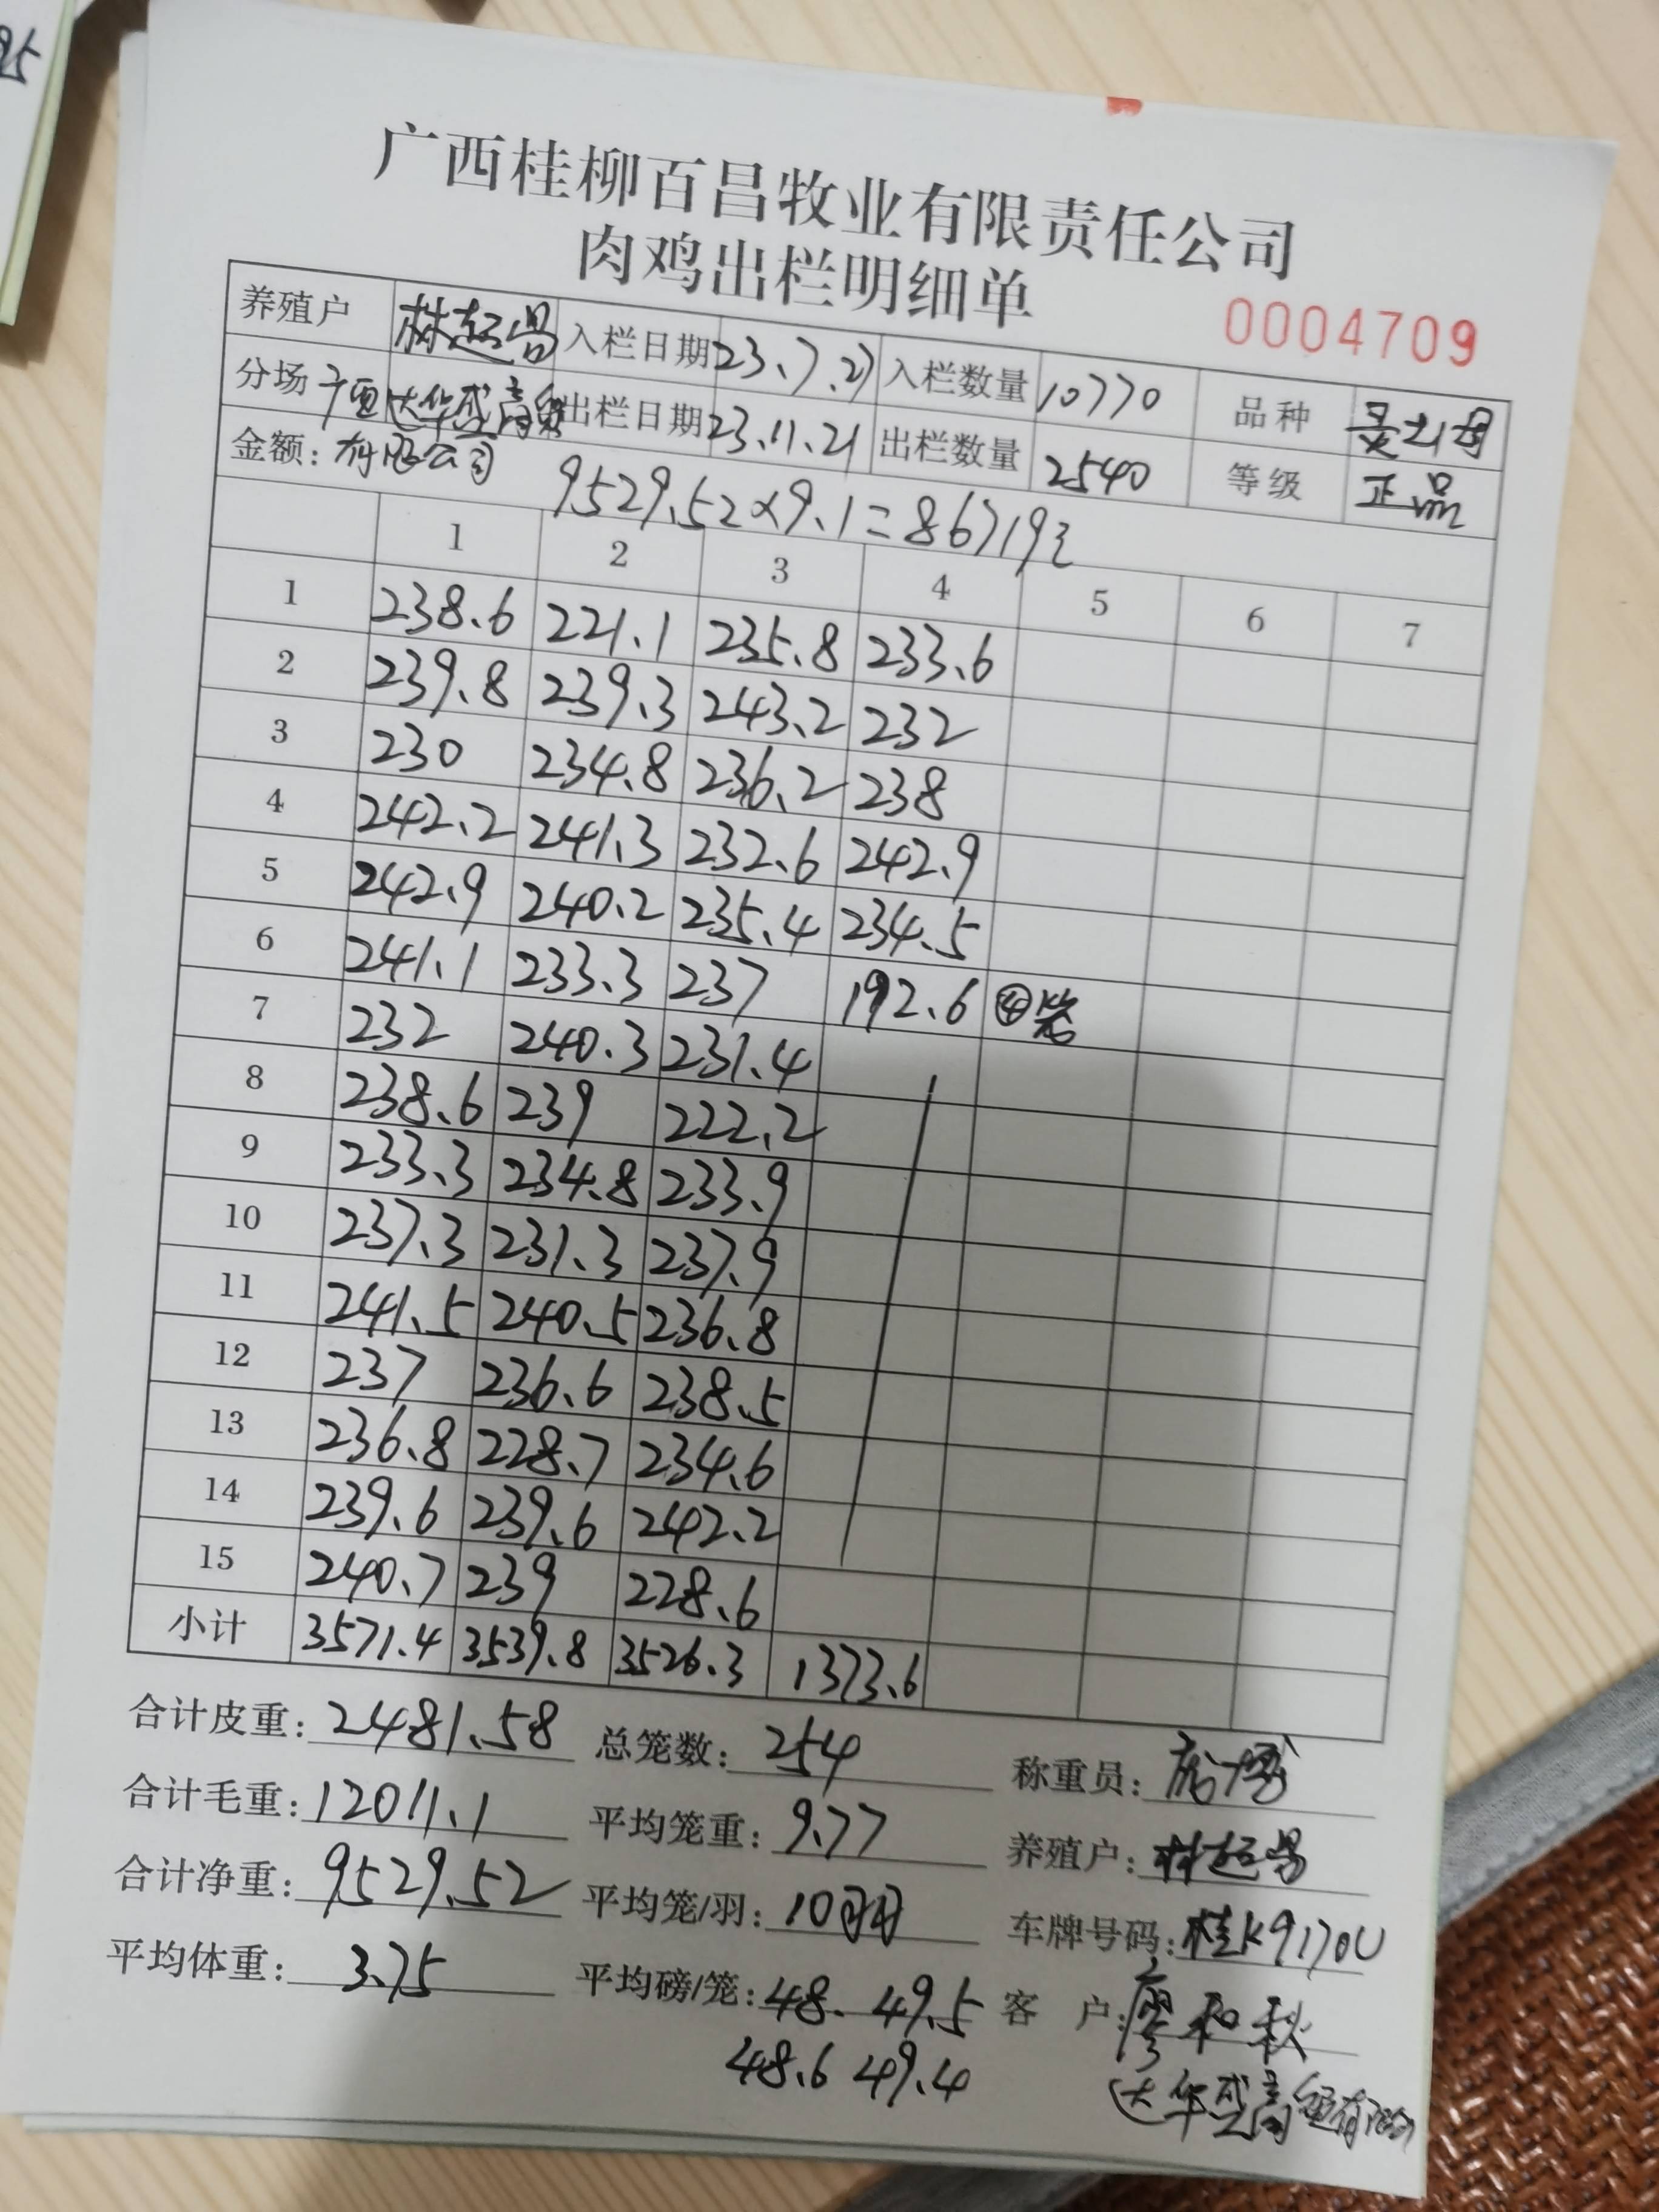 95
广西桂柳百昌牧业有限责任公司
肉鸡出栏明细单
0004709
养殖户 林超昌 入栏日期 23.7.27 入栏数量 10770 品种
分场 广西达华盛商贸 出栏日期 23.11.21 出栏数量 2540 等级 正品
金额: 有限公司 9529.52×9.1=86719元
1 2 3 4 5 6 7
1 238.6 221.1 235.8 233.6
2 239.8 239.3 243.2 232
3 230 234.8 236.2 238
4 242.2 241.3 232.6 242.9
5 242.9 240.2 235.4 234.5
6 241.1 233.3 237 192.6 ④笼
7 232 240.3 231.4
8 238.6 239 222.2
9 233.3 234.8 233.9
10 237.3 231.3 237.9
11 241.5 240.5 236.8
12 237 236.6 238.5
13 236.8 228.7 234.6
14 239.6 239.6 242.2
15 240.7 239 228.6
小计 3571.4 3539.8 3526.3 1373.6
合计皮重: 2481.58 总笼数: 254 称重员:
合计毛重: 12011.1 平均笼重: 9.77 养殖户: 林超昌
合计净重: 9529.52 平均笼/羽: 10羽 车牌号码: 桂K9170U
平均体重: 3.75 平均磅/笼: 48. 49.5 客 户: 廖和秋
48.6 49.4 达华盛商贸有限公司